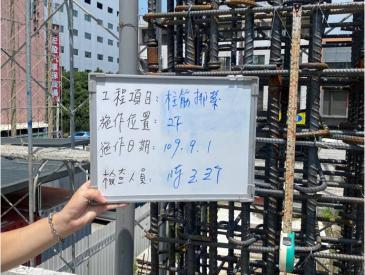 工程項目: 柱筋綁紮
施作位置: 2F
施作日期: 109.9.1
檢查人員: